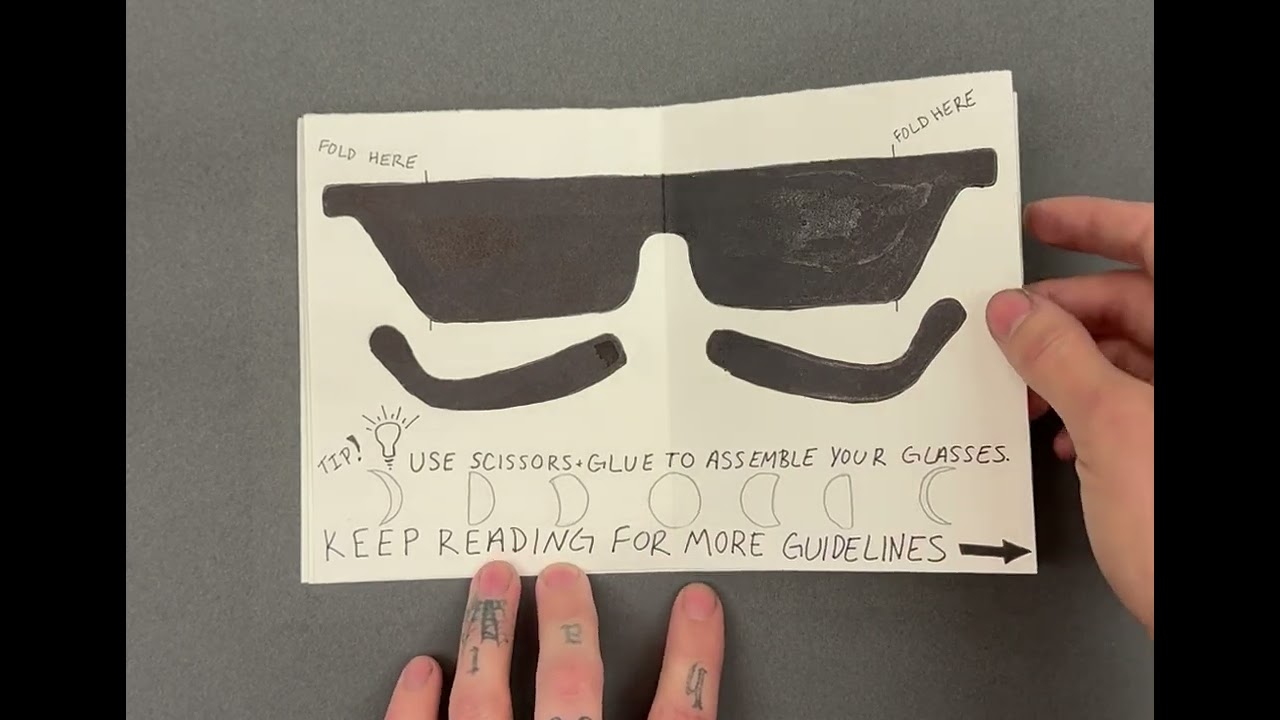 FOLD HERE
FOLD HERE
TIP!
USE SCISSORS+GLUE TO ASSEMBLE YOUR GLASSES.
KEEP READING FOR MORE GUIDELINES